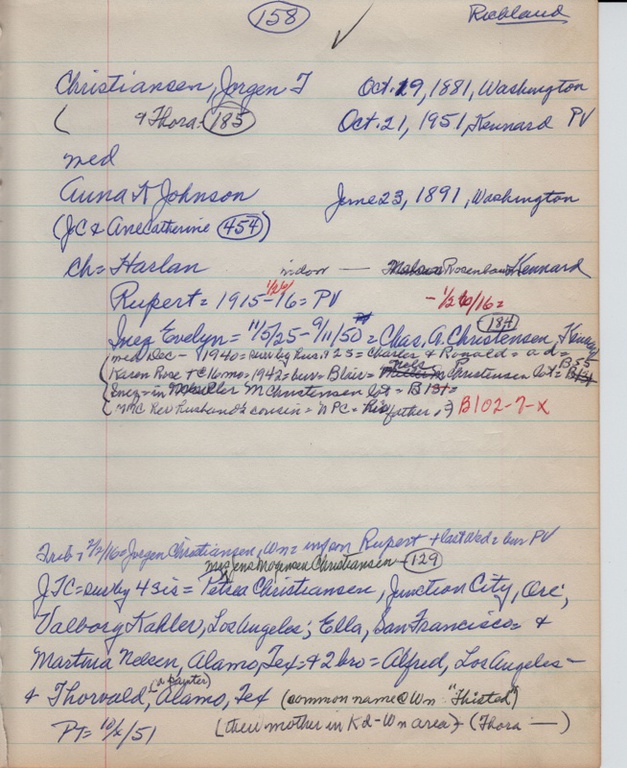 158 Richland
Christiansen, Jorgen T Oct. 29, 1881, Washington
( & Thora - 185 Oct. 21, 1951, Kennard PV
med
Anna K Johnson June 23, 1891, Washington
(JC & AneCatherine 454)
ch = Harlan Rosenbaum Kennard
Rupert = 1915-16 = PV - 1/26/16 =
Inez Evelyn = 11/5/25 - 9/11/50 = Chas. A. Christensen, 184
med Dec - 1940 = sur by hus. + 2 S = Charles & Ronald = a d =
Karen Rose + 6 mo = 1942 = bur = Blair = Christensen lot = B55
Inez = in M Christensen lot = B
Husband's cousin = NPC = His father, ?) B102-7-X
Trib = 2/2/16 = Jorgen Christiansen, Wn = inf son Rupert + last Wed = bur PV
Mrs Jens Mogensen Christiansen - 129
JTC = sur by 4 sis = Petrea Christiansen, Junction City, Ore;
Valborg Kahler, Los Angeles; Ella, San Francisco = &
Martina Nelsen, Alamo, Tex = + 2 bro = Alfred, Los Angeles -
& Thorvald, Alamo, Tex (common name @ Wn "Thisted")
PT = 51 (their mother in Kd-Wn area) - (Thora —)